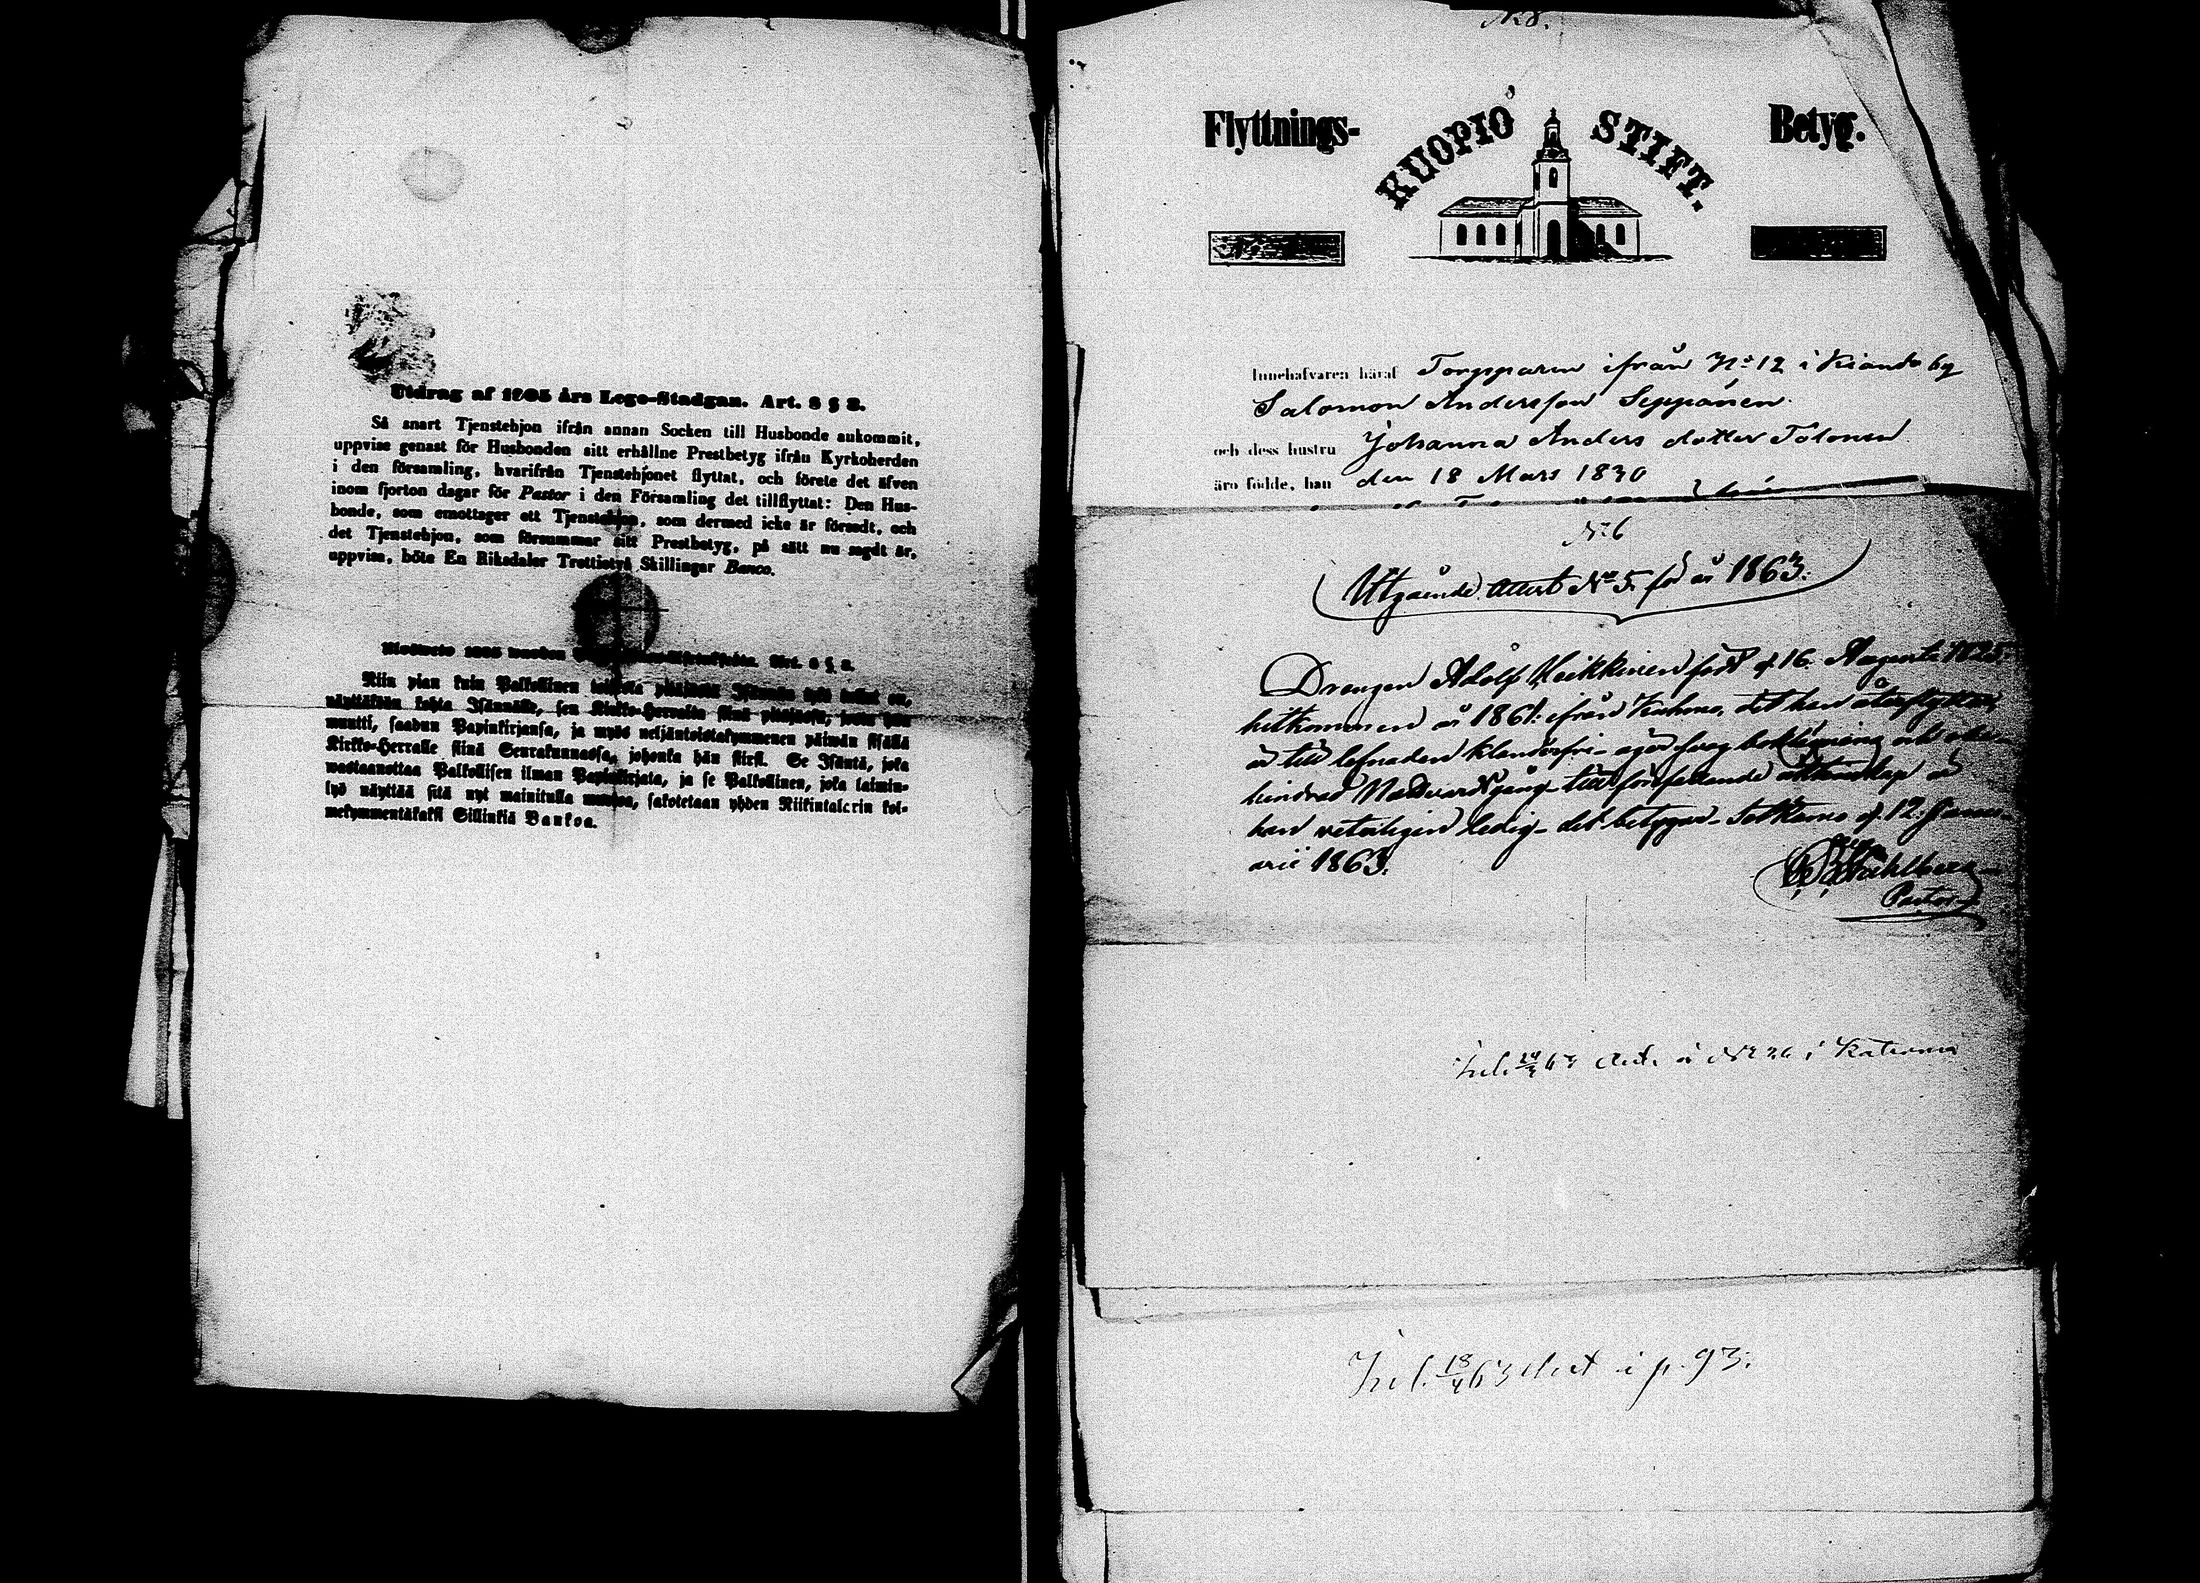 Utdrag af 1805 års Lego-Stadgan. Art. 8 § 8.
Så snart Tjenstehjon ifrån annan Socken till Husbonde ankommit,
uppvise genast för Husbonden sitt erhållne Prestbetyg ifrån Kyrkoherden
i den församling, hvarifrån Tjenstehjonet flyttat, och förete det äfven
inom fjorton dagar för Pastor i den Församling det tillflyttat: Den Hus-
bonde, som emottager ett Tjenstehjon, som dermed icke är försedt, och
det Tjenstehjon, som försummar sitt Prestbetyg, på sätt nu sagdt är,
uppvisa, böte En Riksdaler Trettietvå Skillingar Banco.
Wuoden Art. 8 §. 8.
Niin pian kuin Palkollinen toisesta pitäjästä Isännän työ tullut on,
näyttäkään kohta Isännälle, sen Kirkko-Herralta siinä pitäjässä, josta hän
muutti, saadun Papinkirjansa, ja myös neljäntoistakymmenen päiwän sisällä
Kirkko-Herralle siinä Seurakunnassa, johonka hän siirsi. Se Isäntä, joka
wastaanottaa Palkollisen ilman Papinkirjata, ja se Palkollinen, joka laimin-
lyö näyttää sitä nyt mainitulla muotoa, sakotetaan yhden Riikintalarin kol-
mekymmentäkaksi Sillinkiä Bankoa.
N:8.
Flyttnings- KUOPIO STIFT. Betyg.
Innehafvaren häraf Torpparen ifrån N:o 12 i Kianta by
Salomon Andersson Seppänen
och dess hustru Johanna Anders dotter Tolonen
äro födde, han den 18 Mars 1830
N:6
Utgående Attest N:o 5. för år 1863.
Drengen Adolf Heikkinen född d. 16. Augusti 1825
hitkommen år 1861 ifrån Kuhmo, det han återflyttar,
är till lefnaden klanderfri - äger svag boklärning och obe-
hindrad Nattvardsgång - till författande äktenskap är
han veterligen ledig - det betygar - Sotkamo d. 12 Janu-
arii 1863.
Ståhlberg
Pastor
Inl. 63 Ant. å N:o 26 i
Inl. 18/4 63 Ant i p. 93.